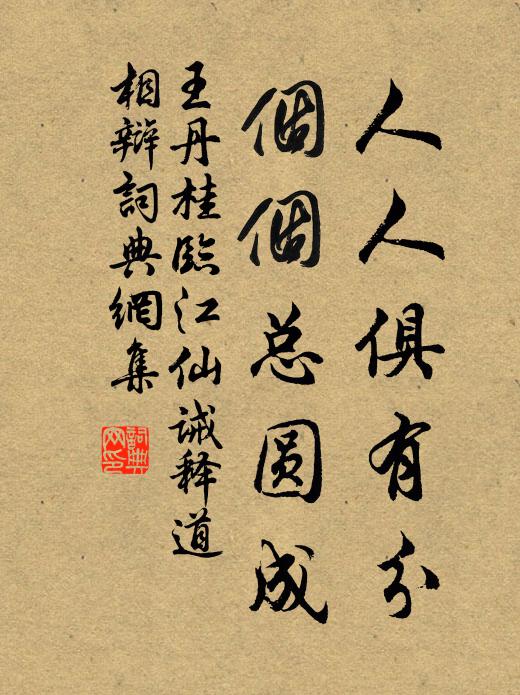 人人俱有分
個個总圆成
王丹桂臨江仙诫释道
相辯詞典網集
詞典網印